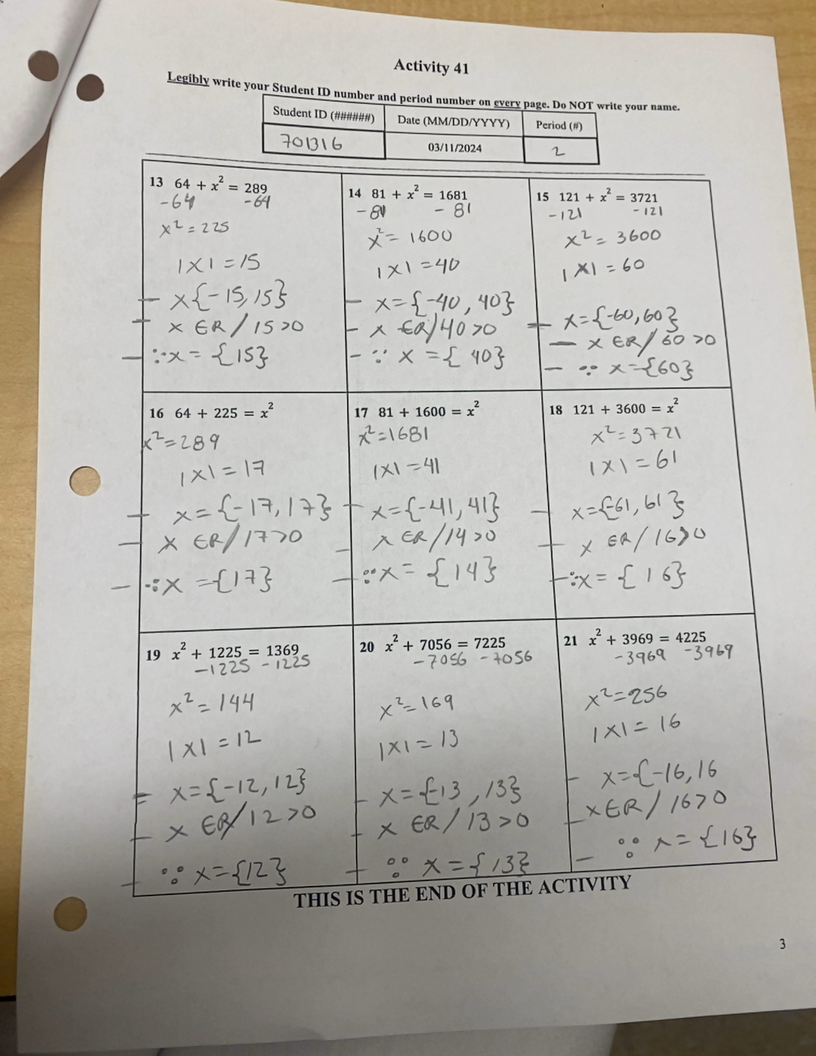 Activity 41
Legibly write your Student ID number and period number on every page. Do NOT write your name.
Student ID (######) Date (MM/DD/YYYY) Period (#)
701316 03/11/2024 2
13 64 + x² = 289
-64 -64
x² = 225
|x| = 15
x{-15, 15}
x ∈R / 15 >0
∵x = {15}
14 81 + x² = 1681
-81 - 81
x² = 1600
|x| = 40
x = {-40, 40}
x ∈R/40 >0
∵ x = { 40}
15 121 + x² = 3721
-121 -121
x² = 3600
|x| = 60
x={-60,60}
x ∈R/ 60 >0
∵ x={60}
16 64 + 225 = x²
x²=289
|x| = 17
x={-17,17}
x ∈R/17>0
∵x ={17}
17 81 + 1600 = x²
x²=1681
|x| = 41
x={-41, 41}
x ∈R/14>0
∵x = {14}
18 121 + 3600 = x²
x²= 3721
|x| = 61
x={-61, 61}
x ∈R/16>0
∵x = { 16}
19 x² + 1225 = 1369
-1225 -1225
x² = 144
|x| = 12
x={-12, 12}
x ∈R/12 >0
∵ x={12}
20 x² + 7056 = 7225
-7056 -7056
x²= 169
|x| = 13
x={-13, 13}
x ∈R/ 13 >0
∵ x={13}
21 x² + 3969 = 4225
-3969 -3969
x²=256
|x| = 16
x={-16, 16
x∈R/ 16>0
∵ x = {16}
THIS IS THE END OF THE ACTIVITY
3